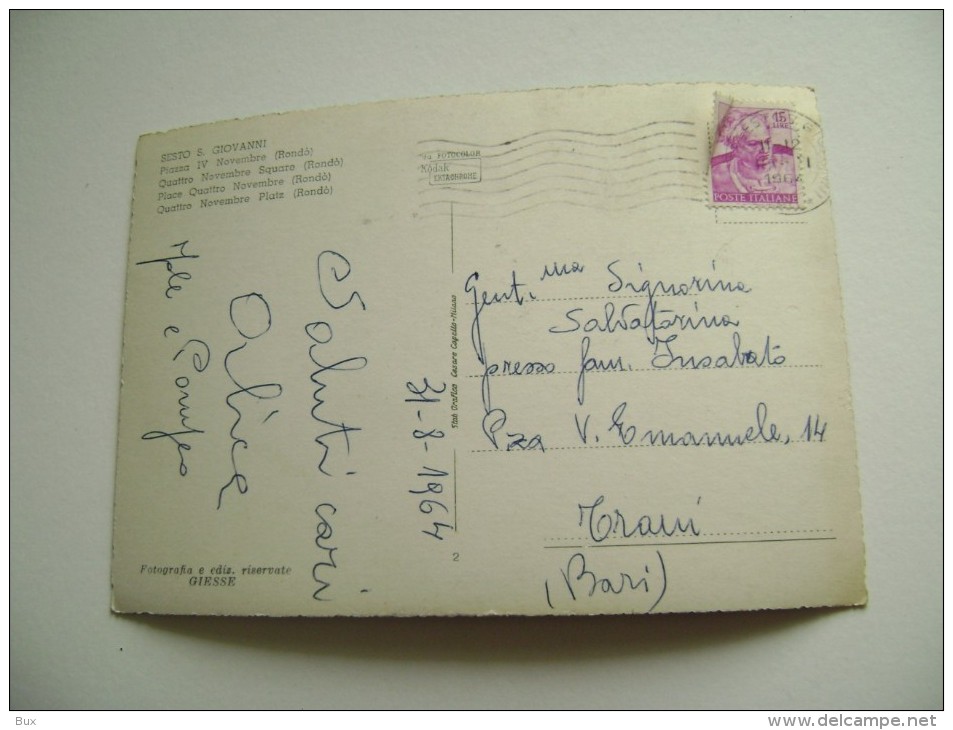 SESTO S. GIOVANNI
Piazza IV Novembre (Rondò)
Quattro Novembre Square (Rondò)
Place Quattro Novembre (Rondò)
Quattro Novembre Platz (Rondò)
FOTOCOLOR
Kodak
EKTACHROME
15
LIRE
1964
POSTE ITALIANE
Gent.ma Signorina
Salvatorina
presso fam. Insabato
Pza V. Emanuele, 14
Trani
(Bari)
Saluti cari
e Pompeo
31-8-1964
Stab Grafico Cesare Capello-Milano
2
Fotografia e ediz. riservate
GIESSE
Bux
http://www.delcampe.net